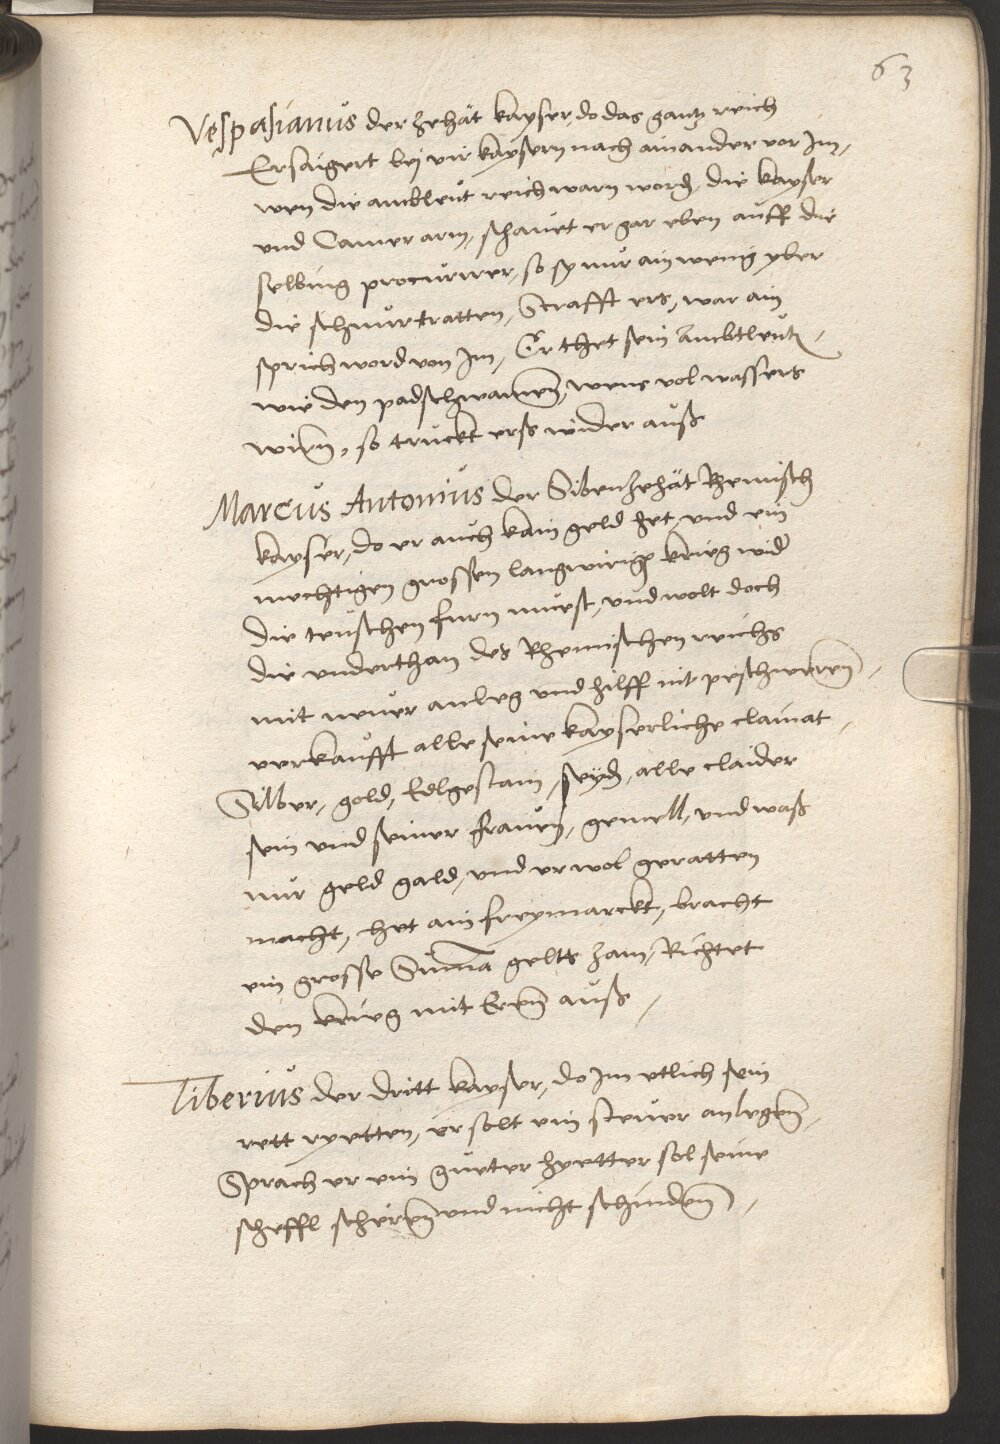 63
Vespasianus der zehät kayser, do das gantz reich
Ersaigert bej vir kaysern nach ainander vor Im,
wen die ambleut reich warn word, die kayser
und Camer arm, schauet er gar eben auff die
selbing procurirer, so sy nur ain wenig yber
die schnur tratten, Strafft ers, war ain
sprichword von Im, Er thet sein Ambtleutn,
wie den padschwamen, wens vol wassers
wirn, so truckt erß wider auß
Marcus Antonius der Sibenzehät Rhemisch
kayser, do er auch kain geld het und ein
mechtigen grossen langwirign krieg wid
die teuschen furn muest, und wolt doch
die underthan des Rhemischen reichs
mit neuer anleg und hilff nit peschweren,
verkaufft alle seine kayserliche clainat,
Silber, gold, Edlgestain, seyd, alle claider
sein und seiner frauen, gemell, und waß
nur geld gald, und er wol geratten
macht, het ain freymarckt, bracht
ein grosse Suma gelts zam, Richtet
den krieg mit Eren auß,
Tiberius der dritt kayser, do Im etlich sein
rett ryetten, er solt ein steuer anlegen,
Sprach er ein gueter hyetter sol seine
scheffl scheren und nicht schinden,